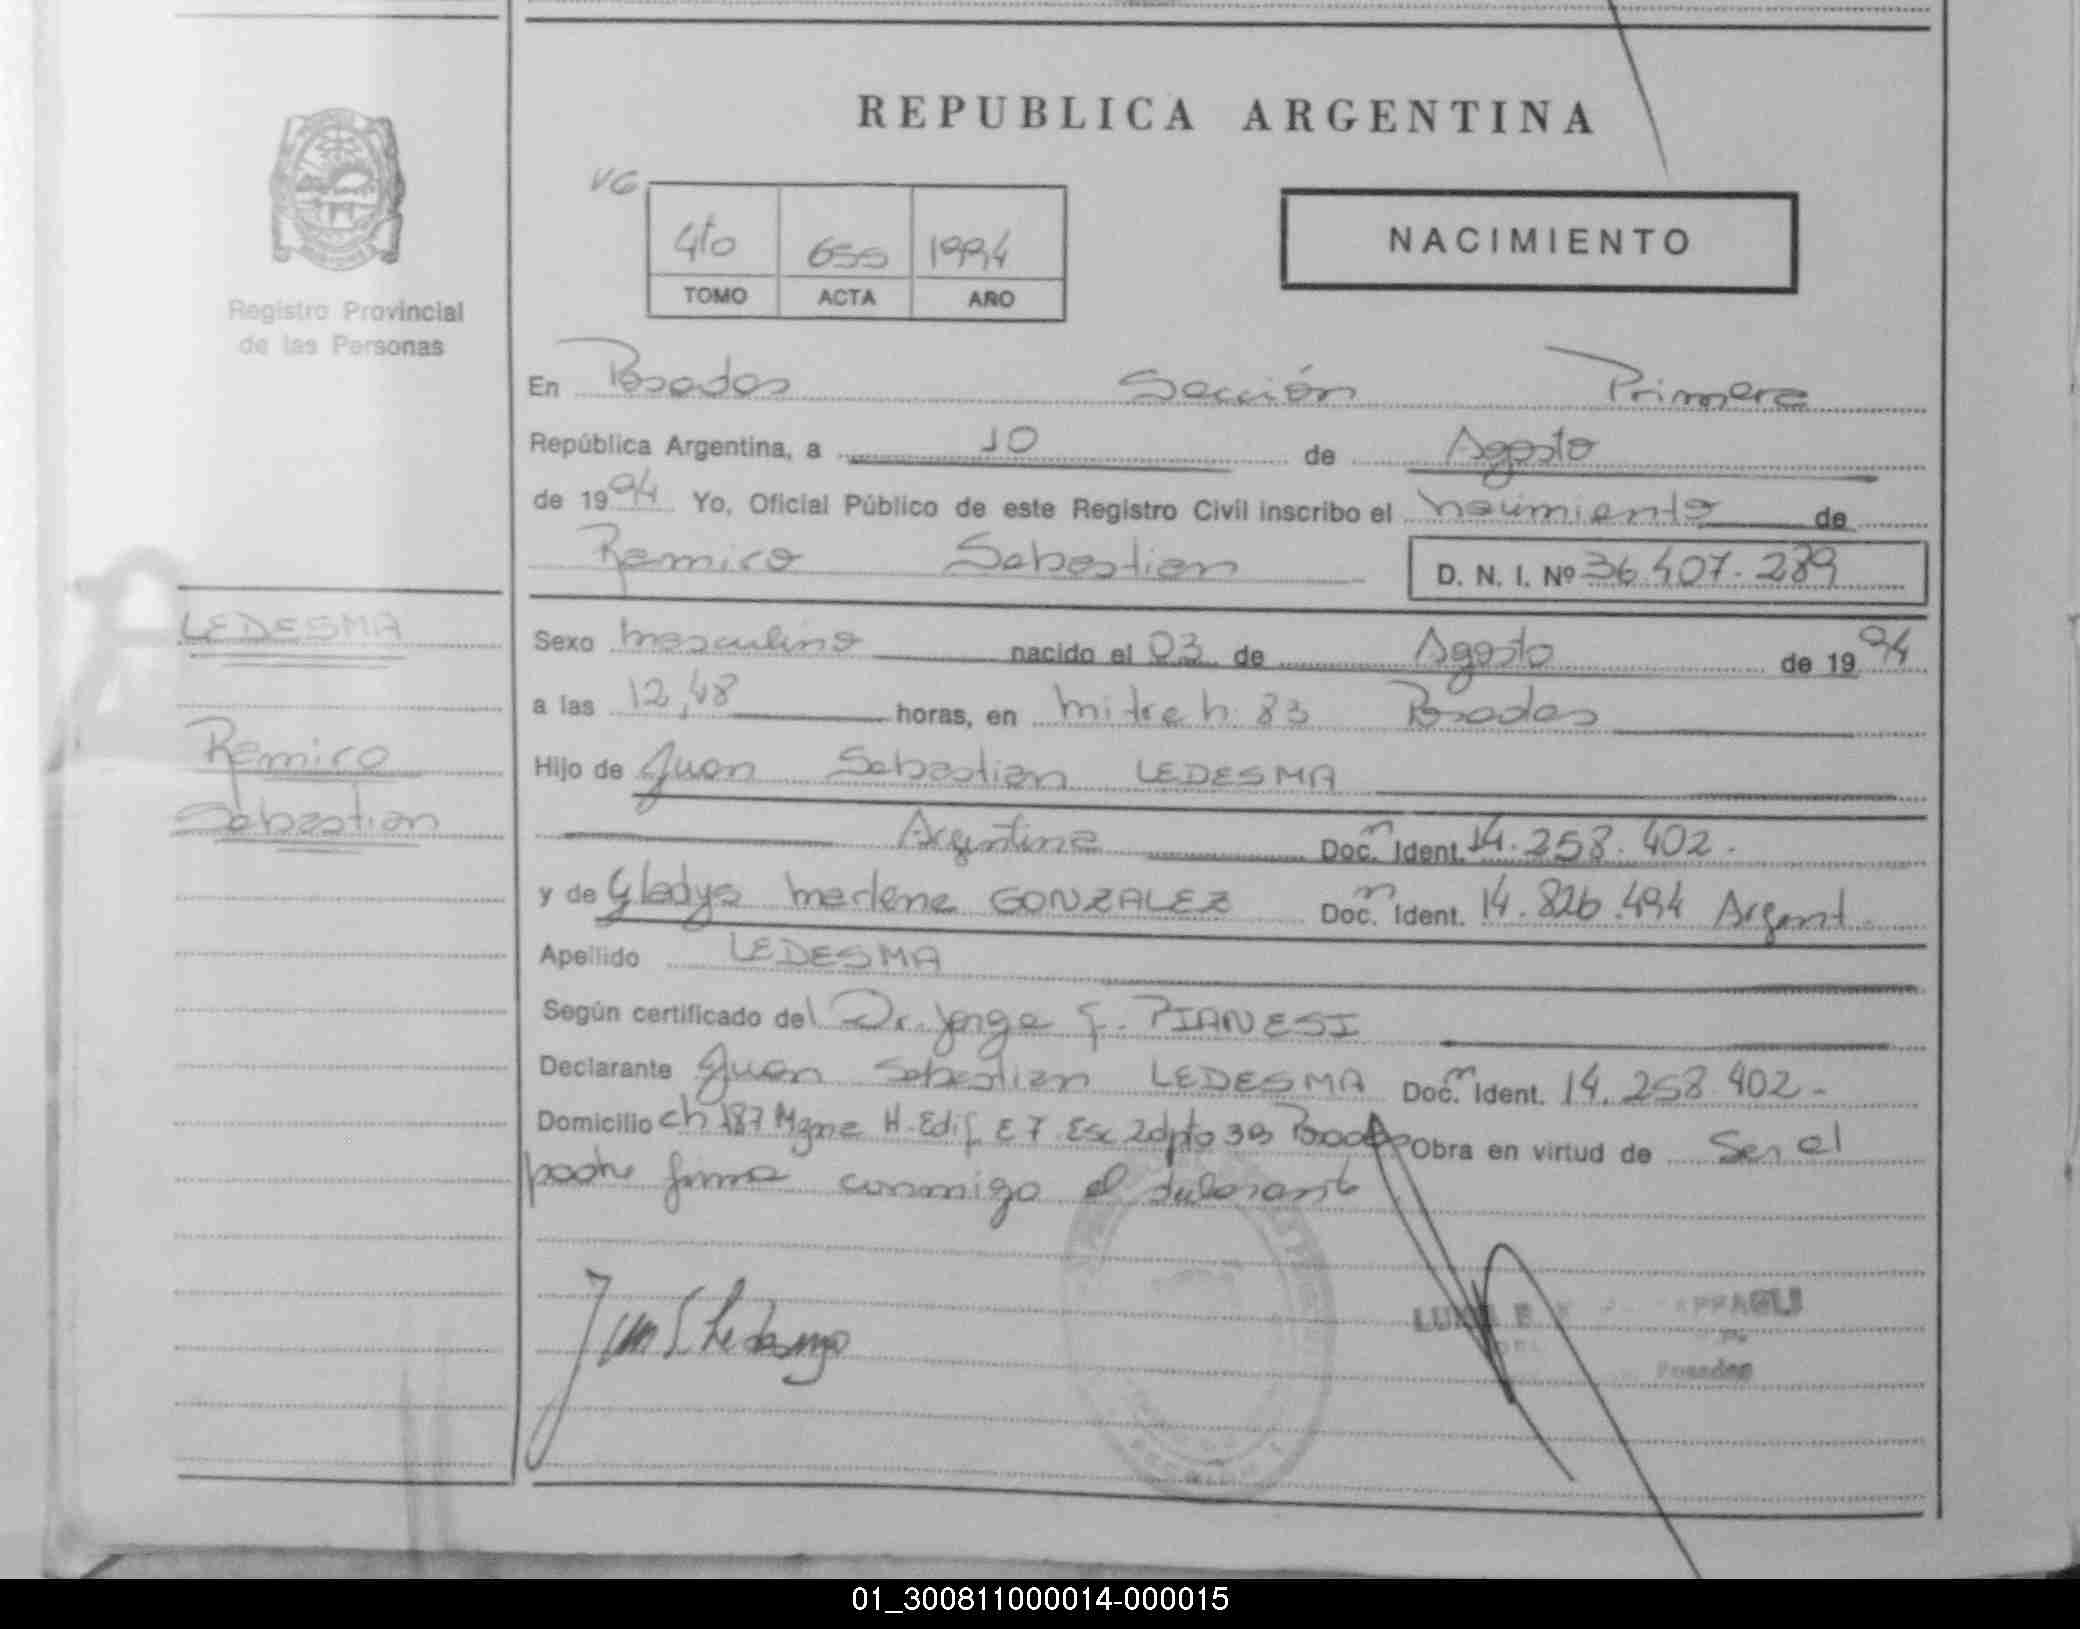 REPUBLICA ARGENTINA
VG
4to 655 1994
TOMO ACTA AÑO
NACIMIENTO
Registro Provincial
de las Personas
En Posadas Sección Primera
República Argentina, a 10 de Agosto
de 1994 Yo, Oficial Público de este Registro Civil inscribo el nacimiento de
Ramiro Sebastian D. N. I. Nº 36.407.289
LEDESMA
Ramiro
Sebastian
Sexo masculino nacido el 03 de Agosto de 1994
a las 12,48 horas, en mitre n 83 Posadas
Hijo de Juan Sebastian LEDESMA
Argentina Doc. Ident. 14.258.402.
y de Gladys Marlene GONZALEZ Doc. Ident. 14.826.494 Argent.
Apellido LEDESMA
Según certificado del Dr. Jorge F. PIANESI
Declarante Juan Sebastian LEDESMA Doc. Ident. 14.258.402-
Domicilio ch 187 Mzna H-Edif. E 7 Esc 2 dpto 3B Posadas Obra en virtud de Ser el
padre firma conmigo el declarante
Juan S Ledesma
Posadas
01_300811000014-000015